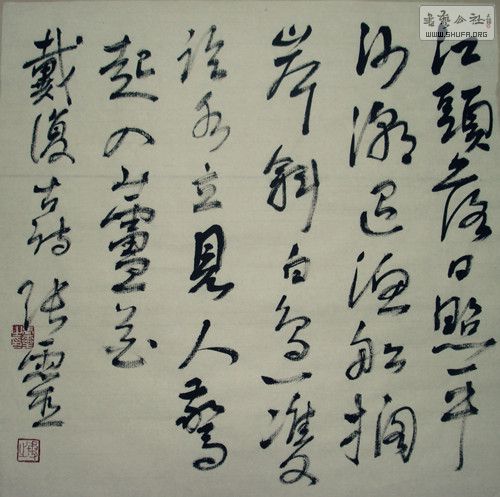 書藝公社
WWW.SHUFA.ORG
江頭落日照平
沙潮退漁船擱
岸斜白鳥一雙
臨水立見人驚
起入蘆花
戴復古詩 張靈